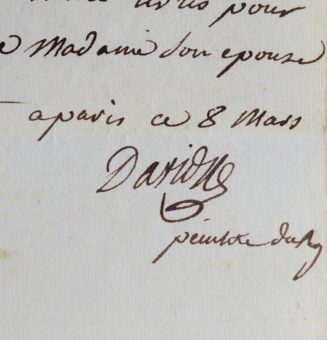 livres pour
Madame son epouse
a paris ce 8 Mars
David
peintre du Roy